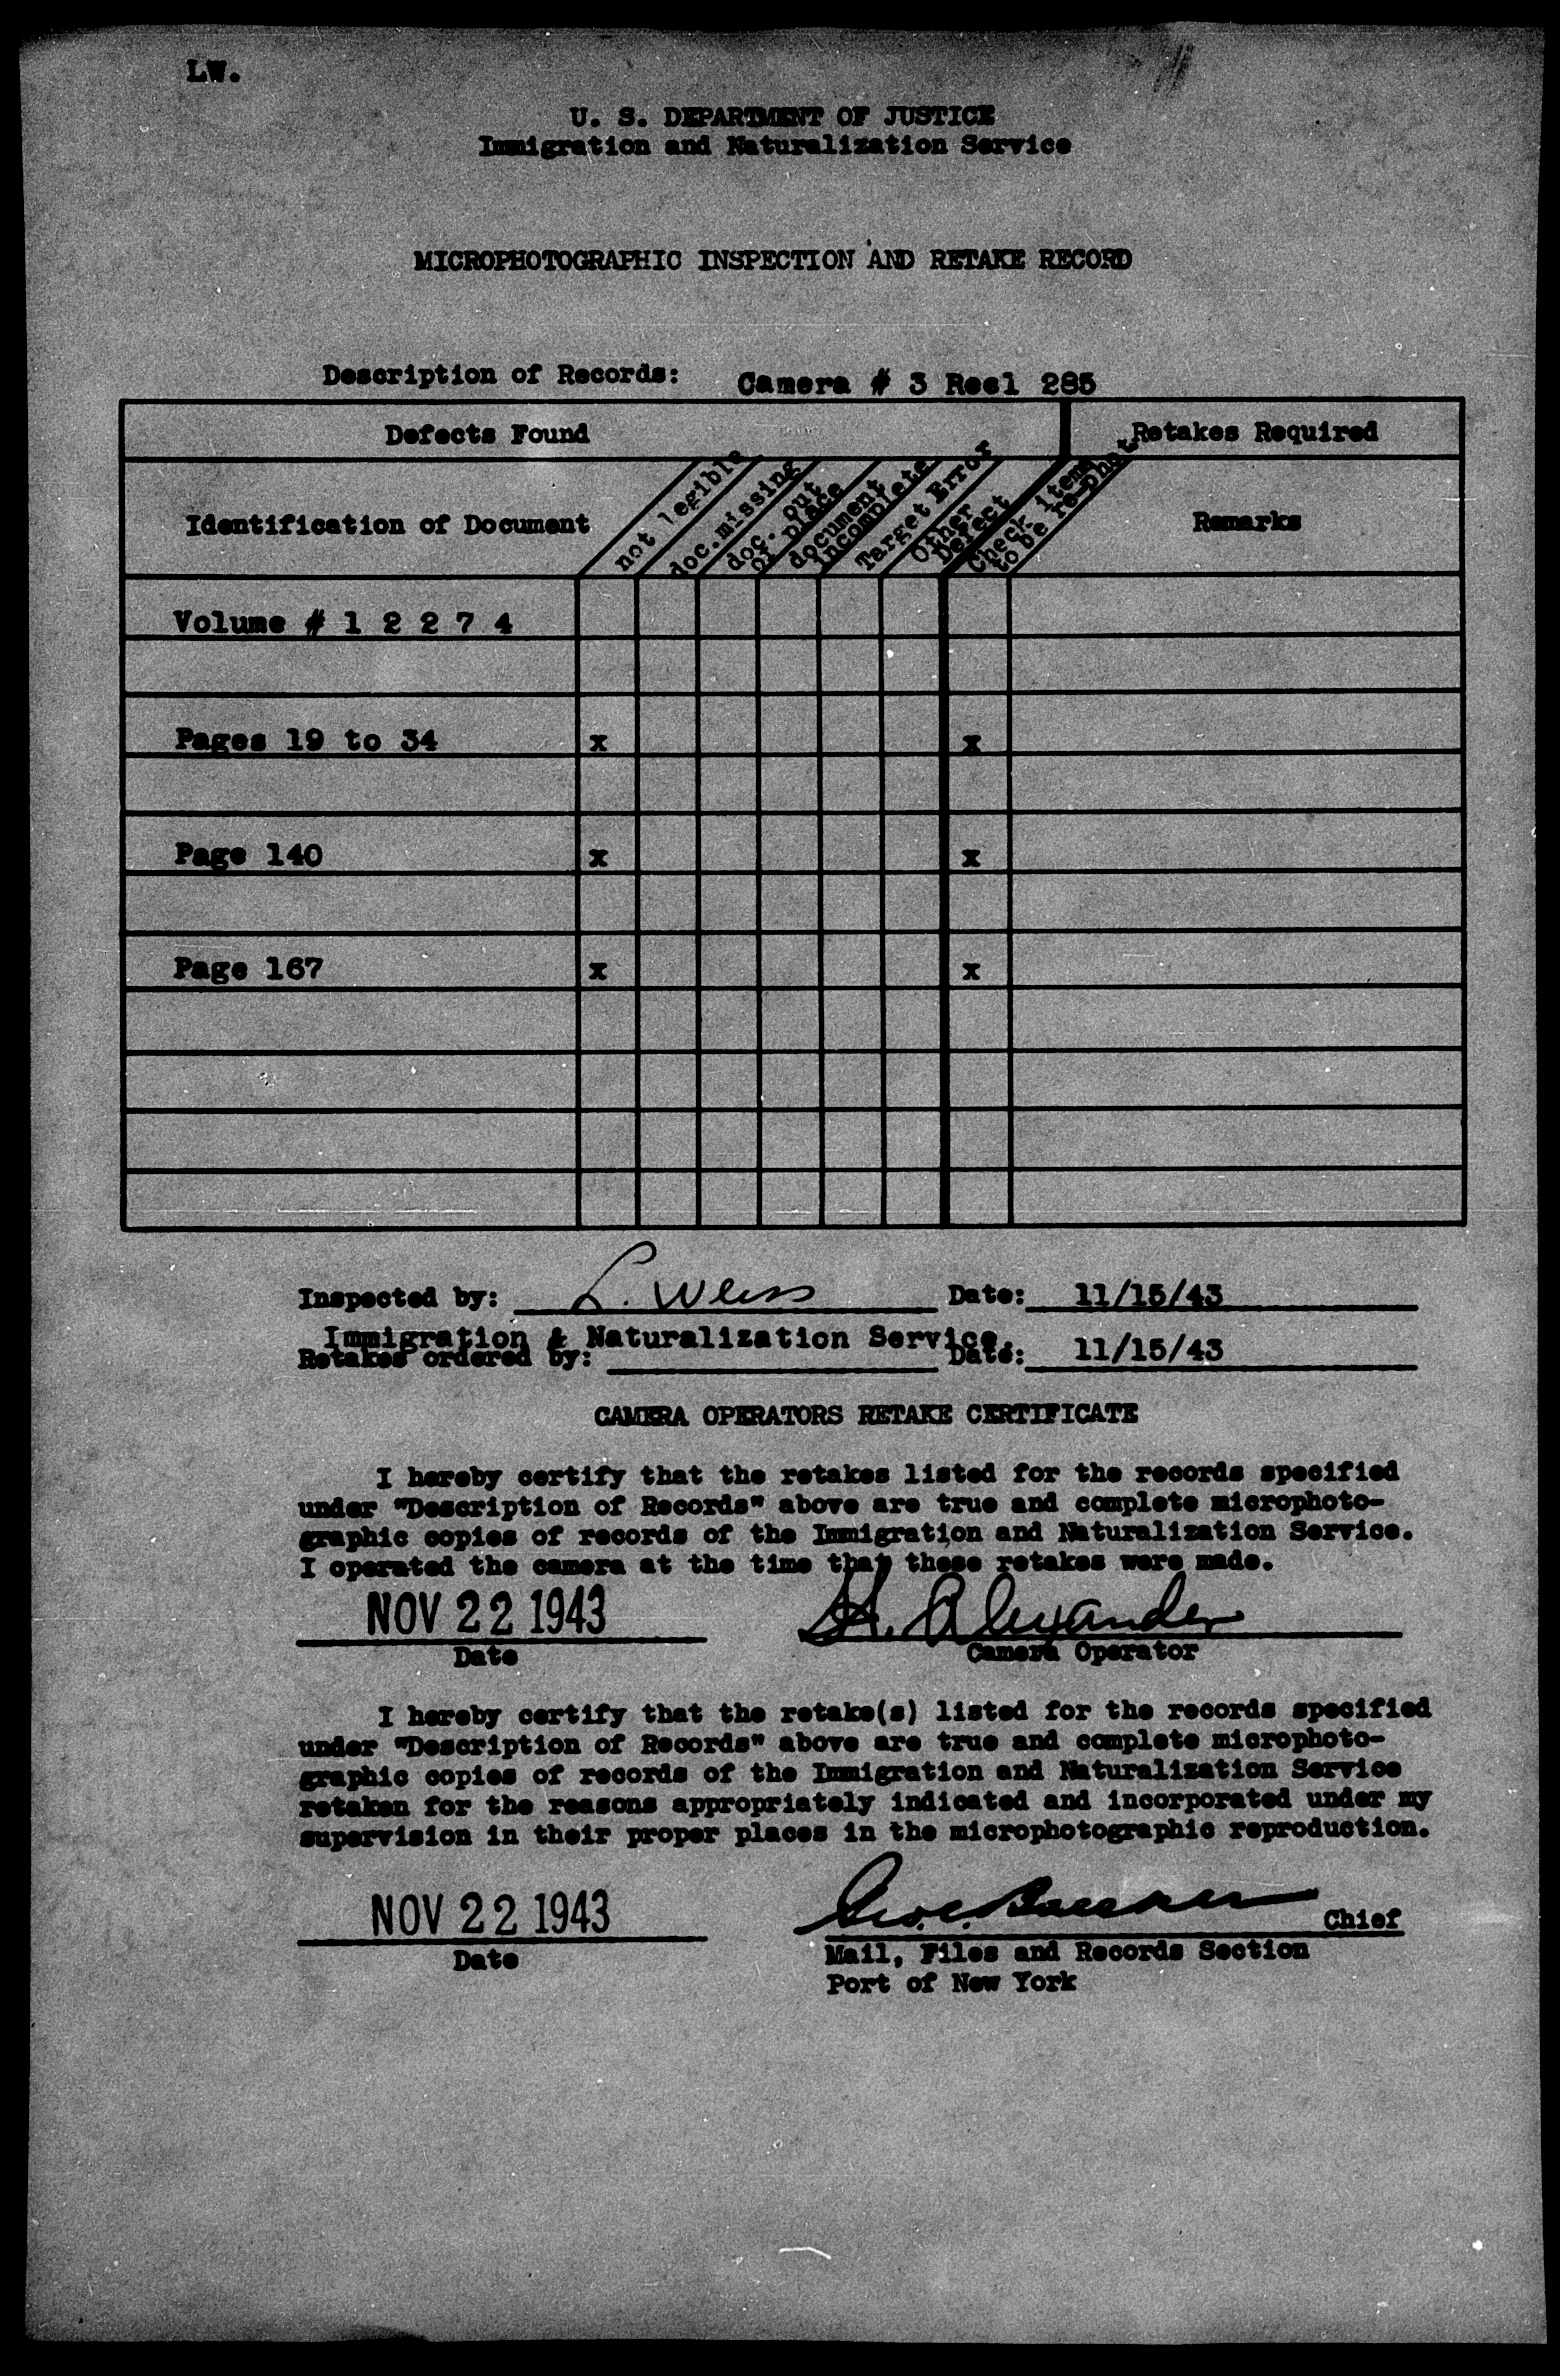 LW.
U. S. DEPARTMENT OF JUSTICE
Immigration and Naturalization Service
MICROPHOTOGRAPHIC INSPECTION AND RETAKE RECORD
Description of Records: Camera # 3 Reel 285
Defects Found Retakes Required
Identification of Document
not legible
doc.missing
doc. out
of place
document
incomplete
Target Error
Other
Defect
Check items
to be re-phot.
Remarks
Volume # 1 2 2 7 4
Pages 19 to 34 x x
Page 140 x x
Page 167 x x
Inspected by: L. Weiss Date: 11/15/43
Immigration & Naturalization Service.
Retakes ordered by: Date: 11/15/43
CAMERA OPERATORS RETAKE CERTIFICATE
I hereby certify that the retakes listed for the records specified
under "Description of Records" above are true and complete microphoto-
graphic copies of records of the Immigration and Naturalization Service.
I operated the camera at the time that these retakes were made.
NOV 22 1943 H. Alexander
Date Camera Operator
I hereby certify that the retake(s) listed for the records specified
under "Description of Records" above are true and complete microphoto-
graphic copies of records of the Immigration and Naturalization Service
retaken for the reasons appropriately indicated and incorporated under my
supervision in their proper places in the microphotographic reproduction.
NOV 22 1943 Chief
Date Mail, Files and Records Section
Port of New York